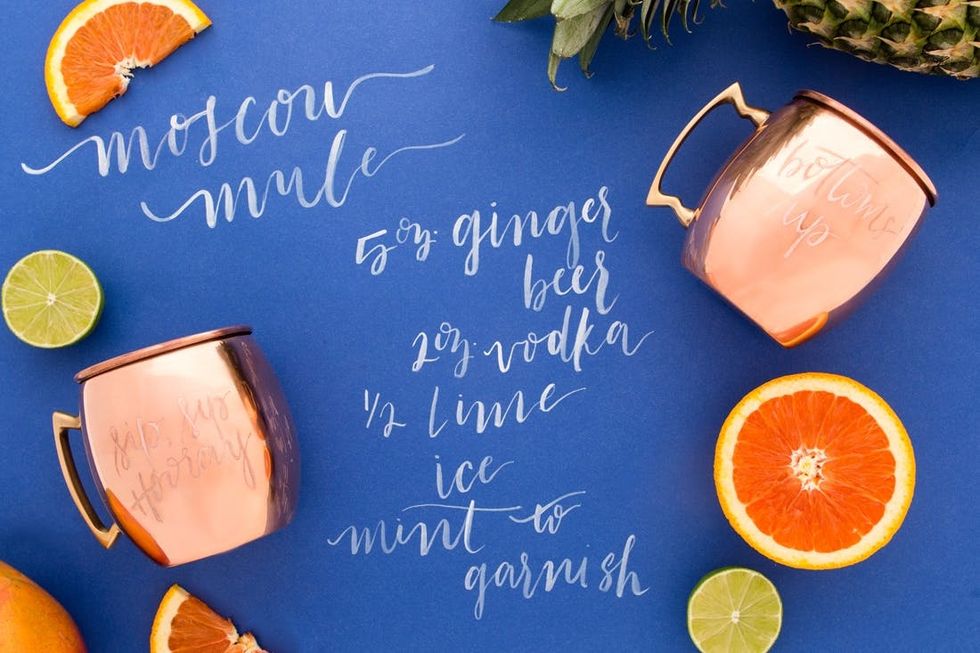 moscow
mule
5 oz. ginger
beer
2 oz. vodka
1/2 lime
ice
mint to
garnish
bottoms
up
sip, sip
hooray